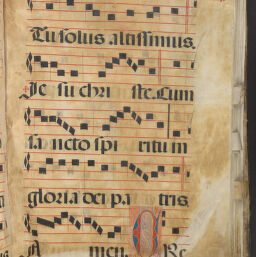 Tu solus altissimus.
Je su chri ste. Cum
sa ncto spi ritu in
gloria dei pa tris
A men. O Re